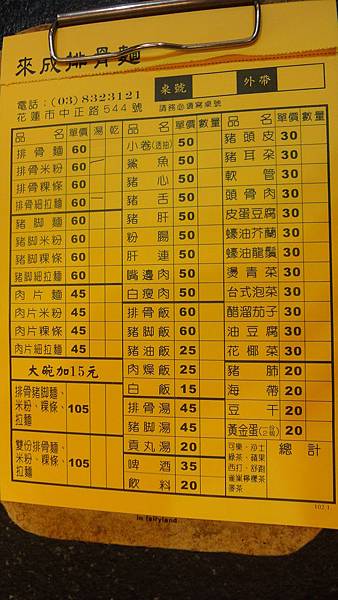 來成排骨麵
電話:(03)8323121
花蓮市中正路544號
桌號
外帶
請務必填寫桌號
品名 單價 湯 乾
排骨麵 60
排骨米粉 60
排骨粿條 60
排骨細拉麵 60
豬腳麵 60
豬腳米粉 60
豬腳粿條 60
豬腳細拉麵 60
肉片麵 45
肉片米粉 45
肉片粿條 45
肉片細拉麵 45
大碗加15元
排骨豬腳麵、
米粉、粿條、
拉麵
105
雙份排骨麵、
米粉、粿條、
拉麵
105
品名 單價 數量
小卷(透抽) 50
鯊魚 50
豬心 50
豬舌 50
豬肝 50
粉腸 50
肝連 50
嘴邊肉 50
白瘦肉 50
排骨飯 60
豬腳飯 60
豬油飯 25
肉燥飯 20
白飯 15
排骨湯 45
豬腳湯 45
貢丸湯 20
啤酒 35
飲料 20
品名 單價 數量
豬頭皮 30
豬耳朵 30
軟管 30
頭骨肉 30
皮蛋豆腐 30
蠔油芥蘭 30
蠔油龍鬚 30
燙青菜 30
台式泡菜 30
醋溜茄子 30
油豆腐 30
花椰菜 30
豬肺 20
海帶 20
豆干 20
黃金蛋 20
可樂、沙士
綠茶、蘋果
西打、舒跑
雀巢檸檬茶
麥茶
總計
102.1.
in fairyland